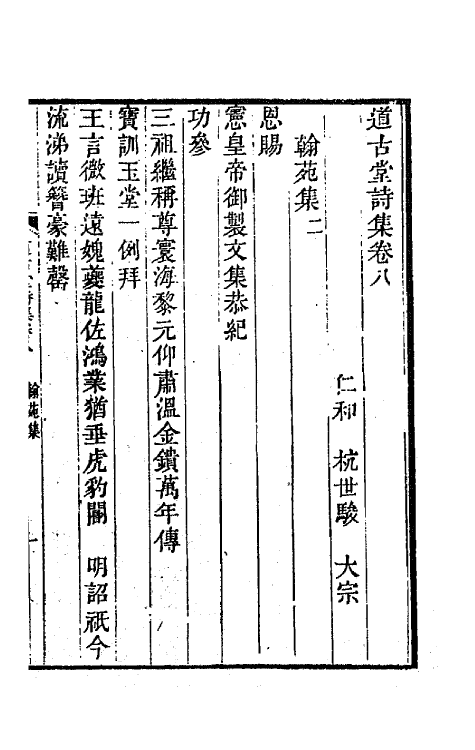 道古堂詩集卷八
仁和 杭世駿 大宗
翰苑集二
恩賜
憲皇帝御製文集恭紀
功參
三祖繼稱尊寰海黎元仰肅溫金鐀萬年傳
寶訓玉堂一例拜
王言微班遠媿夔龍佐鴻業猶垂虎豹關 明詔祇今
流涕讀簪豪難罄
翰苑集